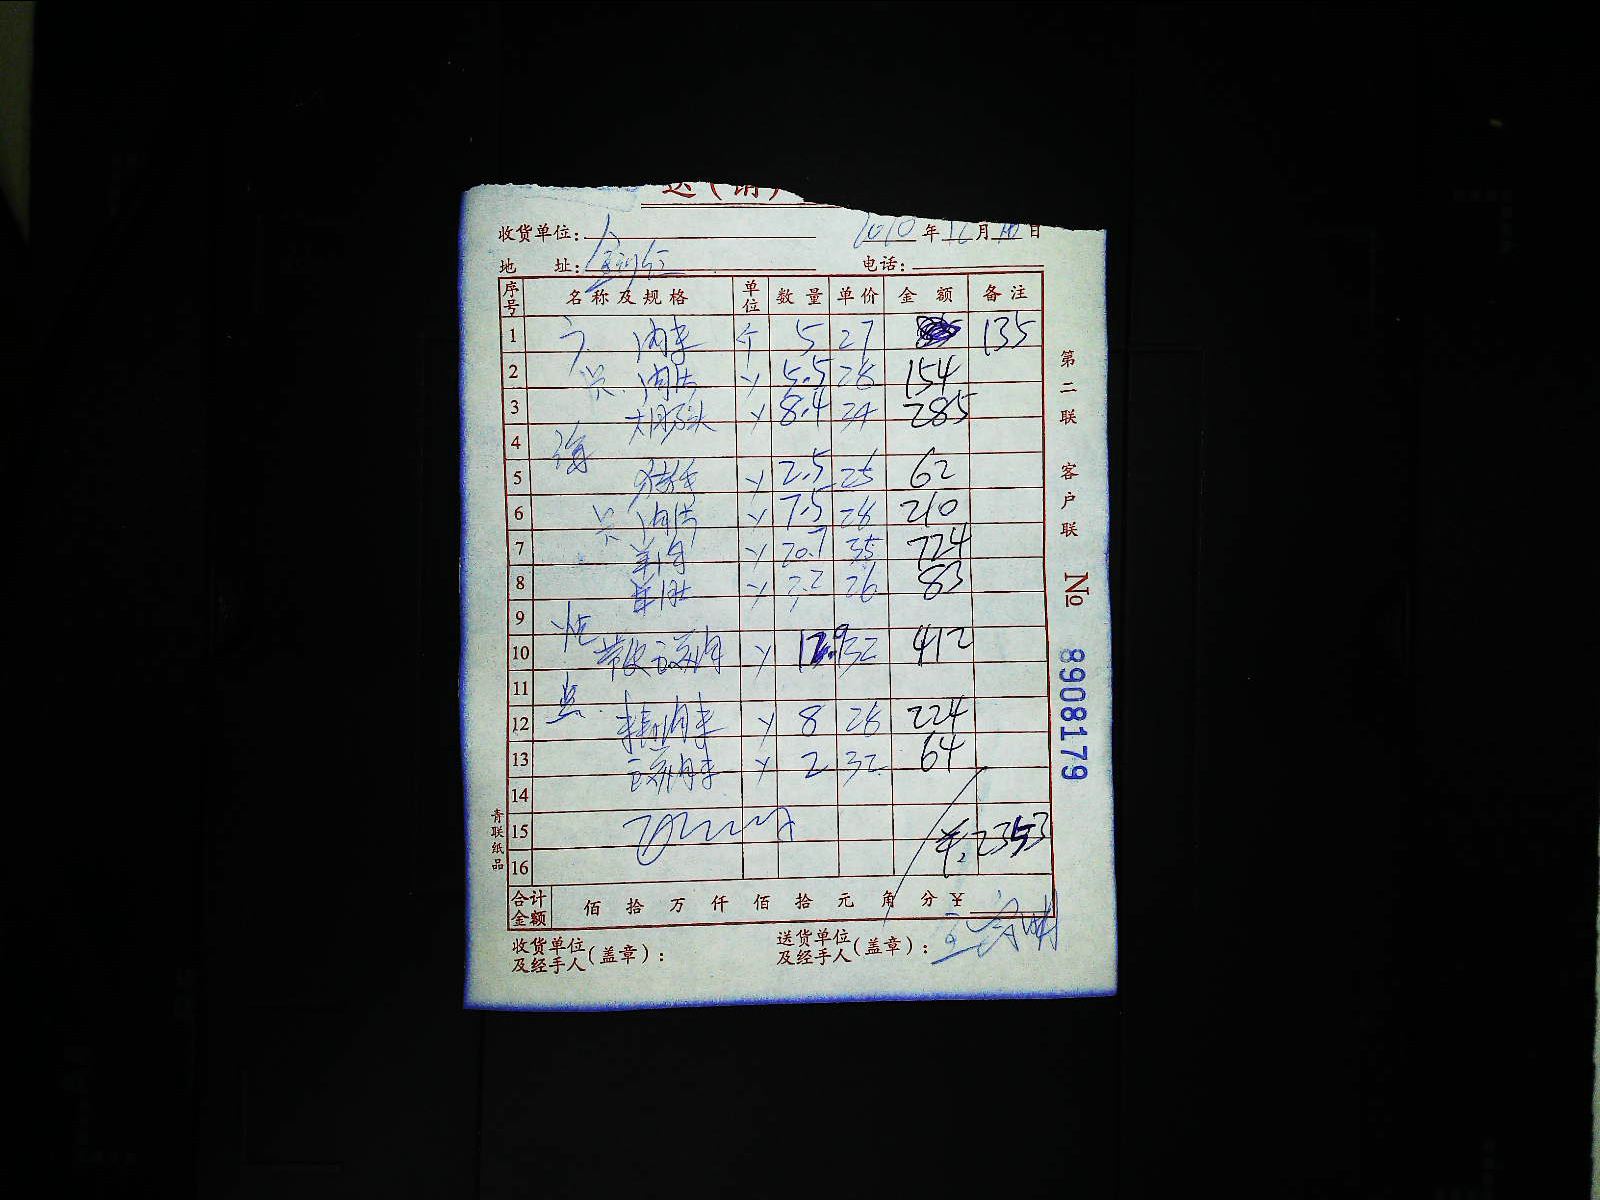 送（销）
收货单位： 年 月 日
地 址： 电话：
序号 名称及规格 单位 数量 单价 金额 备注
1 肉末 个 5 27 135
2 肉片 5.5 28 154
3 8.4 34 285
4
5 猪手 2.5 25 62
6 肉片 7.5 28 210
7 20.7 35 724
8 羊肚 3.2 26 83
9
10 带皮五花肉 12.9 32 412
11
12 精肉末 8 28 224
13 五花肉末 2 32 64
14
15 ¥:2353
16
合计金额 佰 拾 万 仟 佰 拾 元 角 分 ¥
收货单位及经手人（盖章）： 送货单位及经手人（盖章）：
第二联 客户联
No 8908179
青联纸品